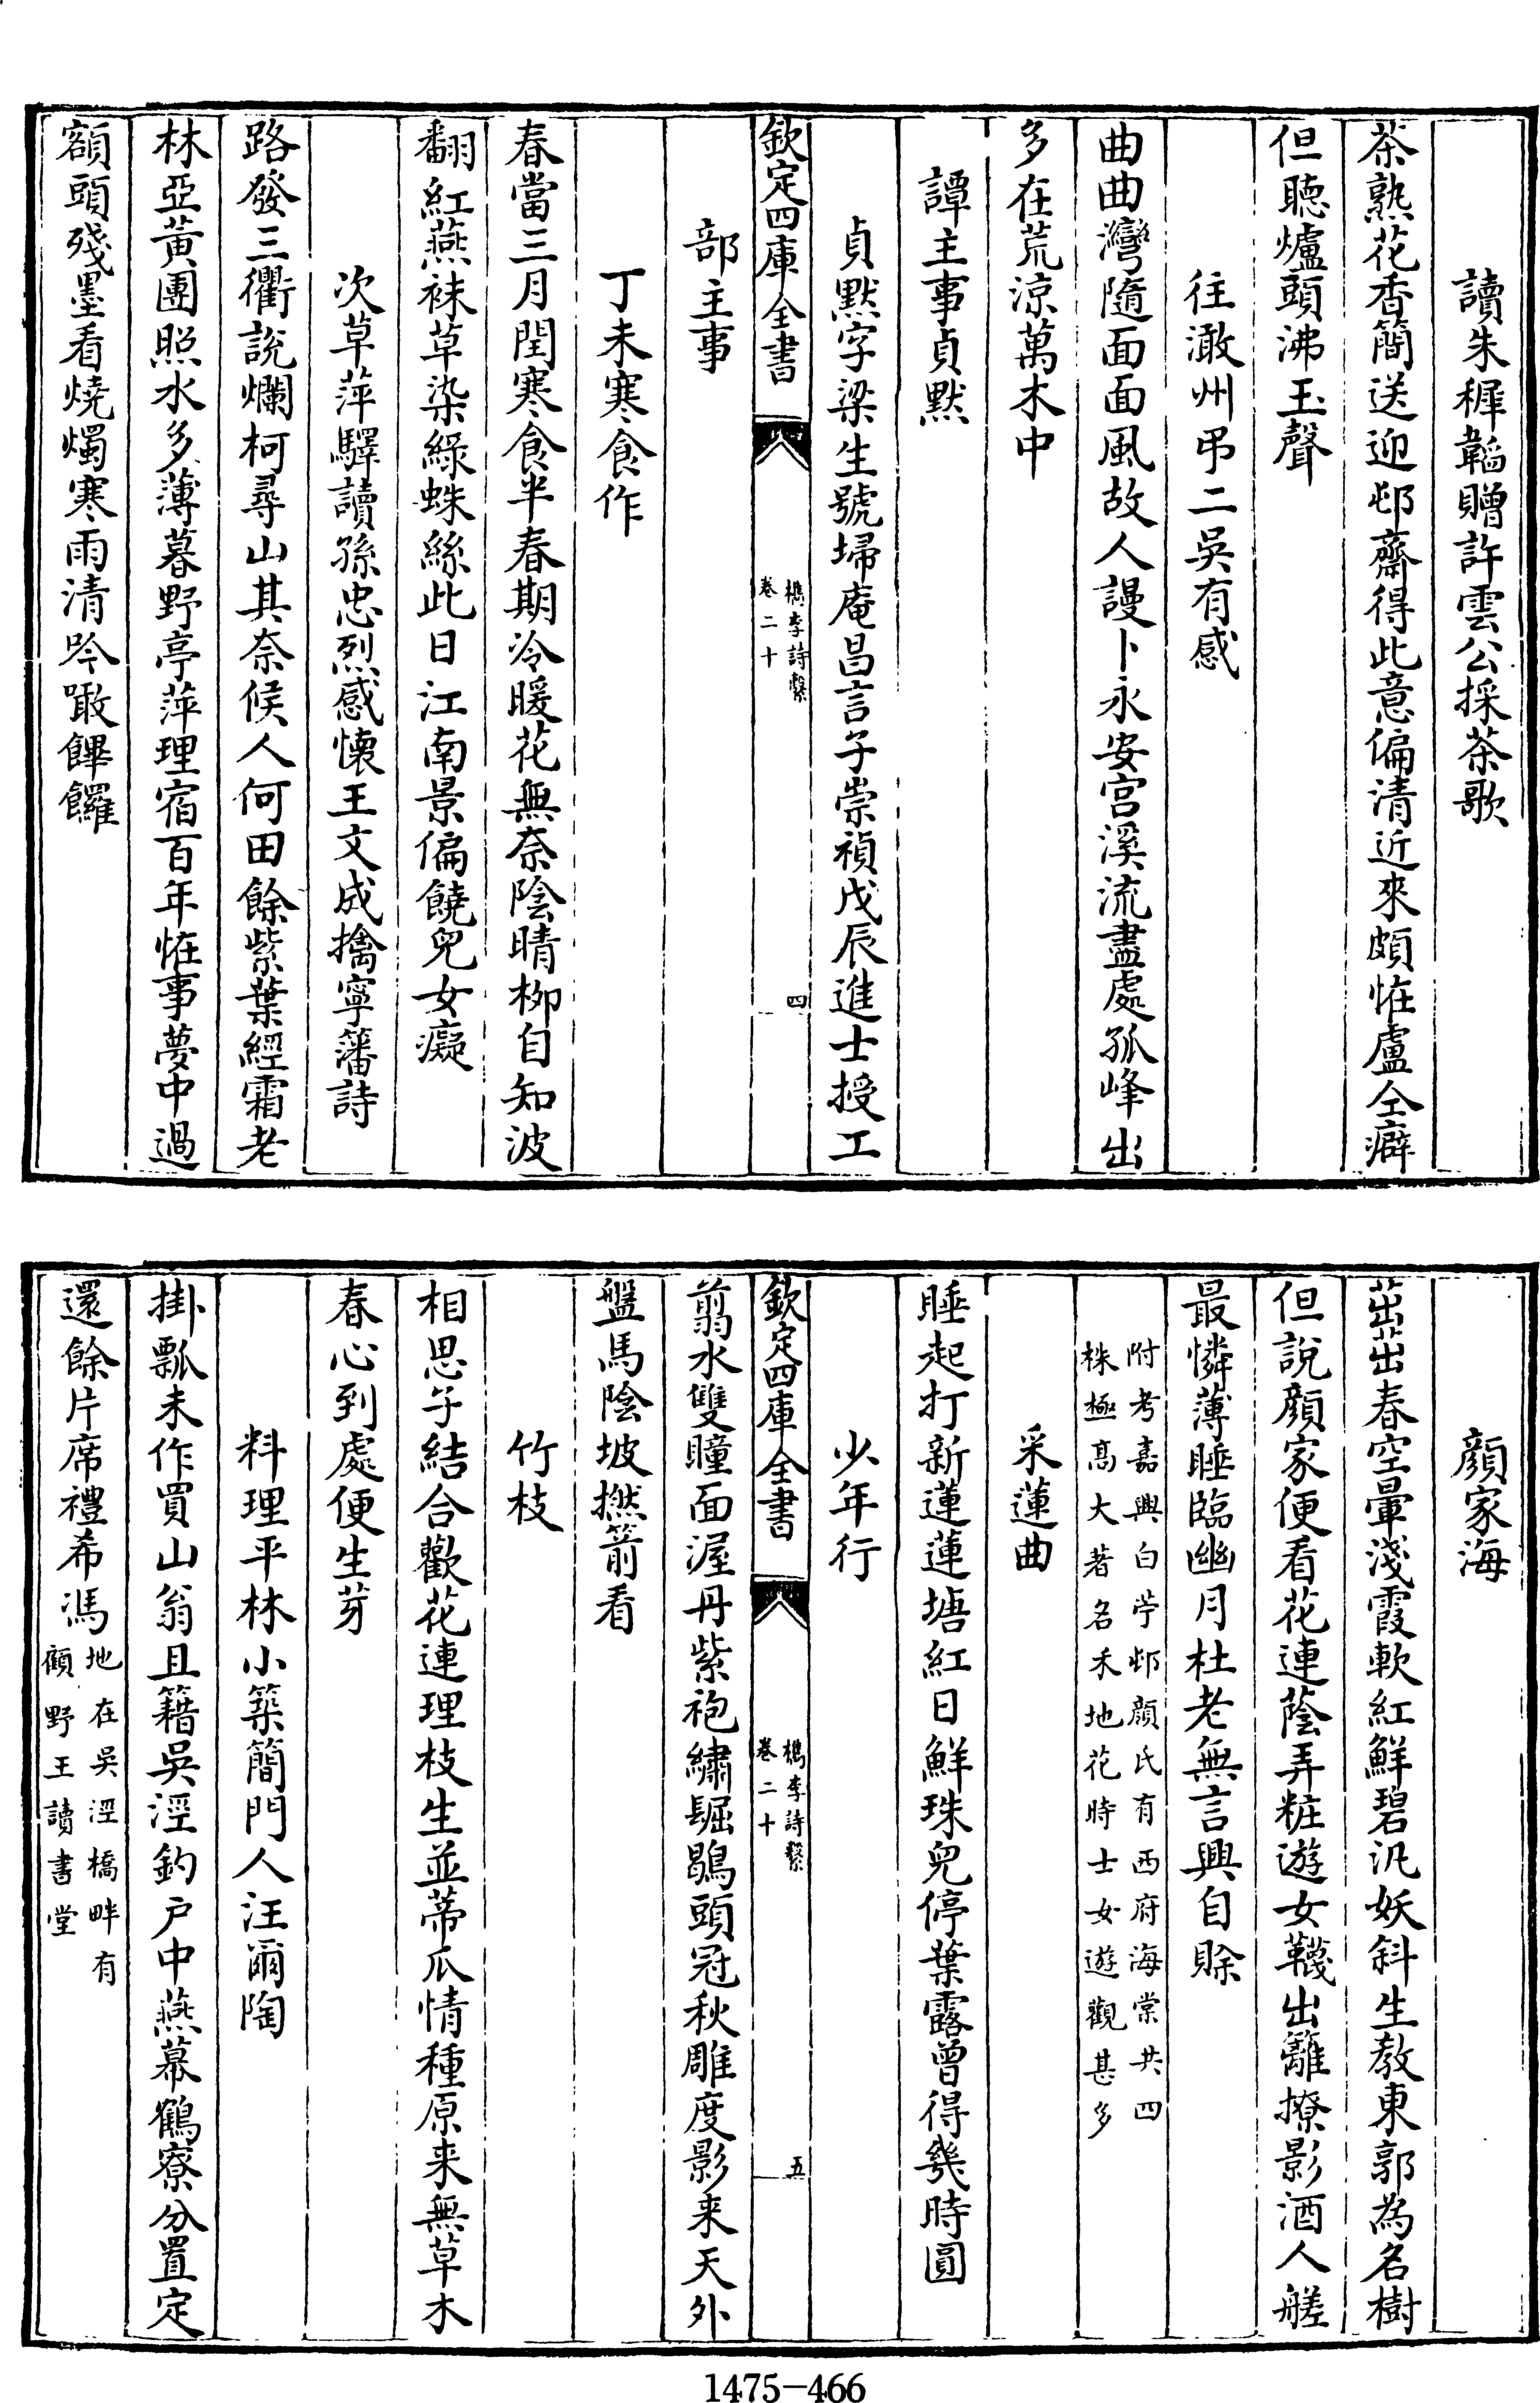 讀朱穉韜贈許雲公採茶歌
茶熟花香簡送迎邨齋得此意偏清近來頗恠盧仝癖
但聽爐頭沸玉聲
往澉州弔二吳有感
曲曲灣隨面面風故人謾卜永安宮溪流盡處孤峰出
多在荒涼萬木中
譚主事貞默
貞默字梁生號埽庵昌言子崇禎戊辰進士授工
欽定四庫全書
檇李詩繫
卷二十
四
部主事
丁未寒食作
春當三月閏寒食半春期冷暖花無奈陰晴柳自知波
翻紅燕袜草染綠蛛絲此日江南景偏饒兒女癡
次草萍驛讀孫忠烈感懷王文成擒寧藩詩
路發三衢說爛柯尋山其奈候人何田餘紫葉經霜老
林亞黃團照水多薄暮野亭萍理宿百年恠事夢中過
額頭殘墨看燒燭寒雨清吟噉饆饠
顏家海
茁茁春空暈淺霞軟紅鮮碧汎妖斜生教東郭為名樹
但說顏家便看花連蔭弄粧遊女韈出籬撩影酒人艖
最憐薄睡臨幽月杜老無言興自賖
附考嘉興白苧邨顏氏有西府海棠共四
株極高大著名禾地花時士女遊觀甚多
采蓮曲
睡起打新蓮蓮塘紅日鮮珠兒停葉露曾得幾時圓
少年行
欽定四庫全書
檇李詩繫
卷二十
五
翦水雙瞳面渥丹紫袍繡镼鶡頭冠秋雕度影来天外
盤馬陰坡撚箭看
竹枝
相思子結合歡花連理枝生並蒂瓜情種原来無草木
春心到處便生芽
料理平林小築簡門人汪爾陶
掛瓢未作買山翁且籍吳涇釣户中燕幕鶴寮分置定
還餘片席禮希馮
地在吳涇橋畔有
顧野王讀書堂
1475-466